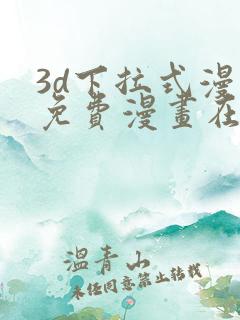 3d下拉式漫
免費漫畫在
溫青山
未经同意禁止转载